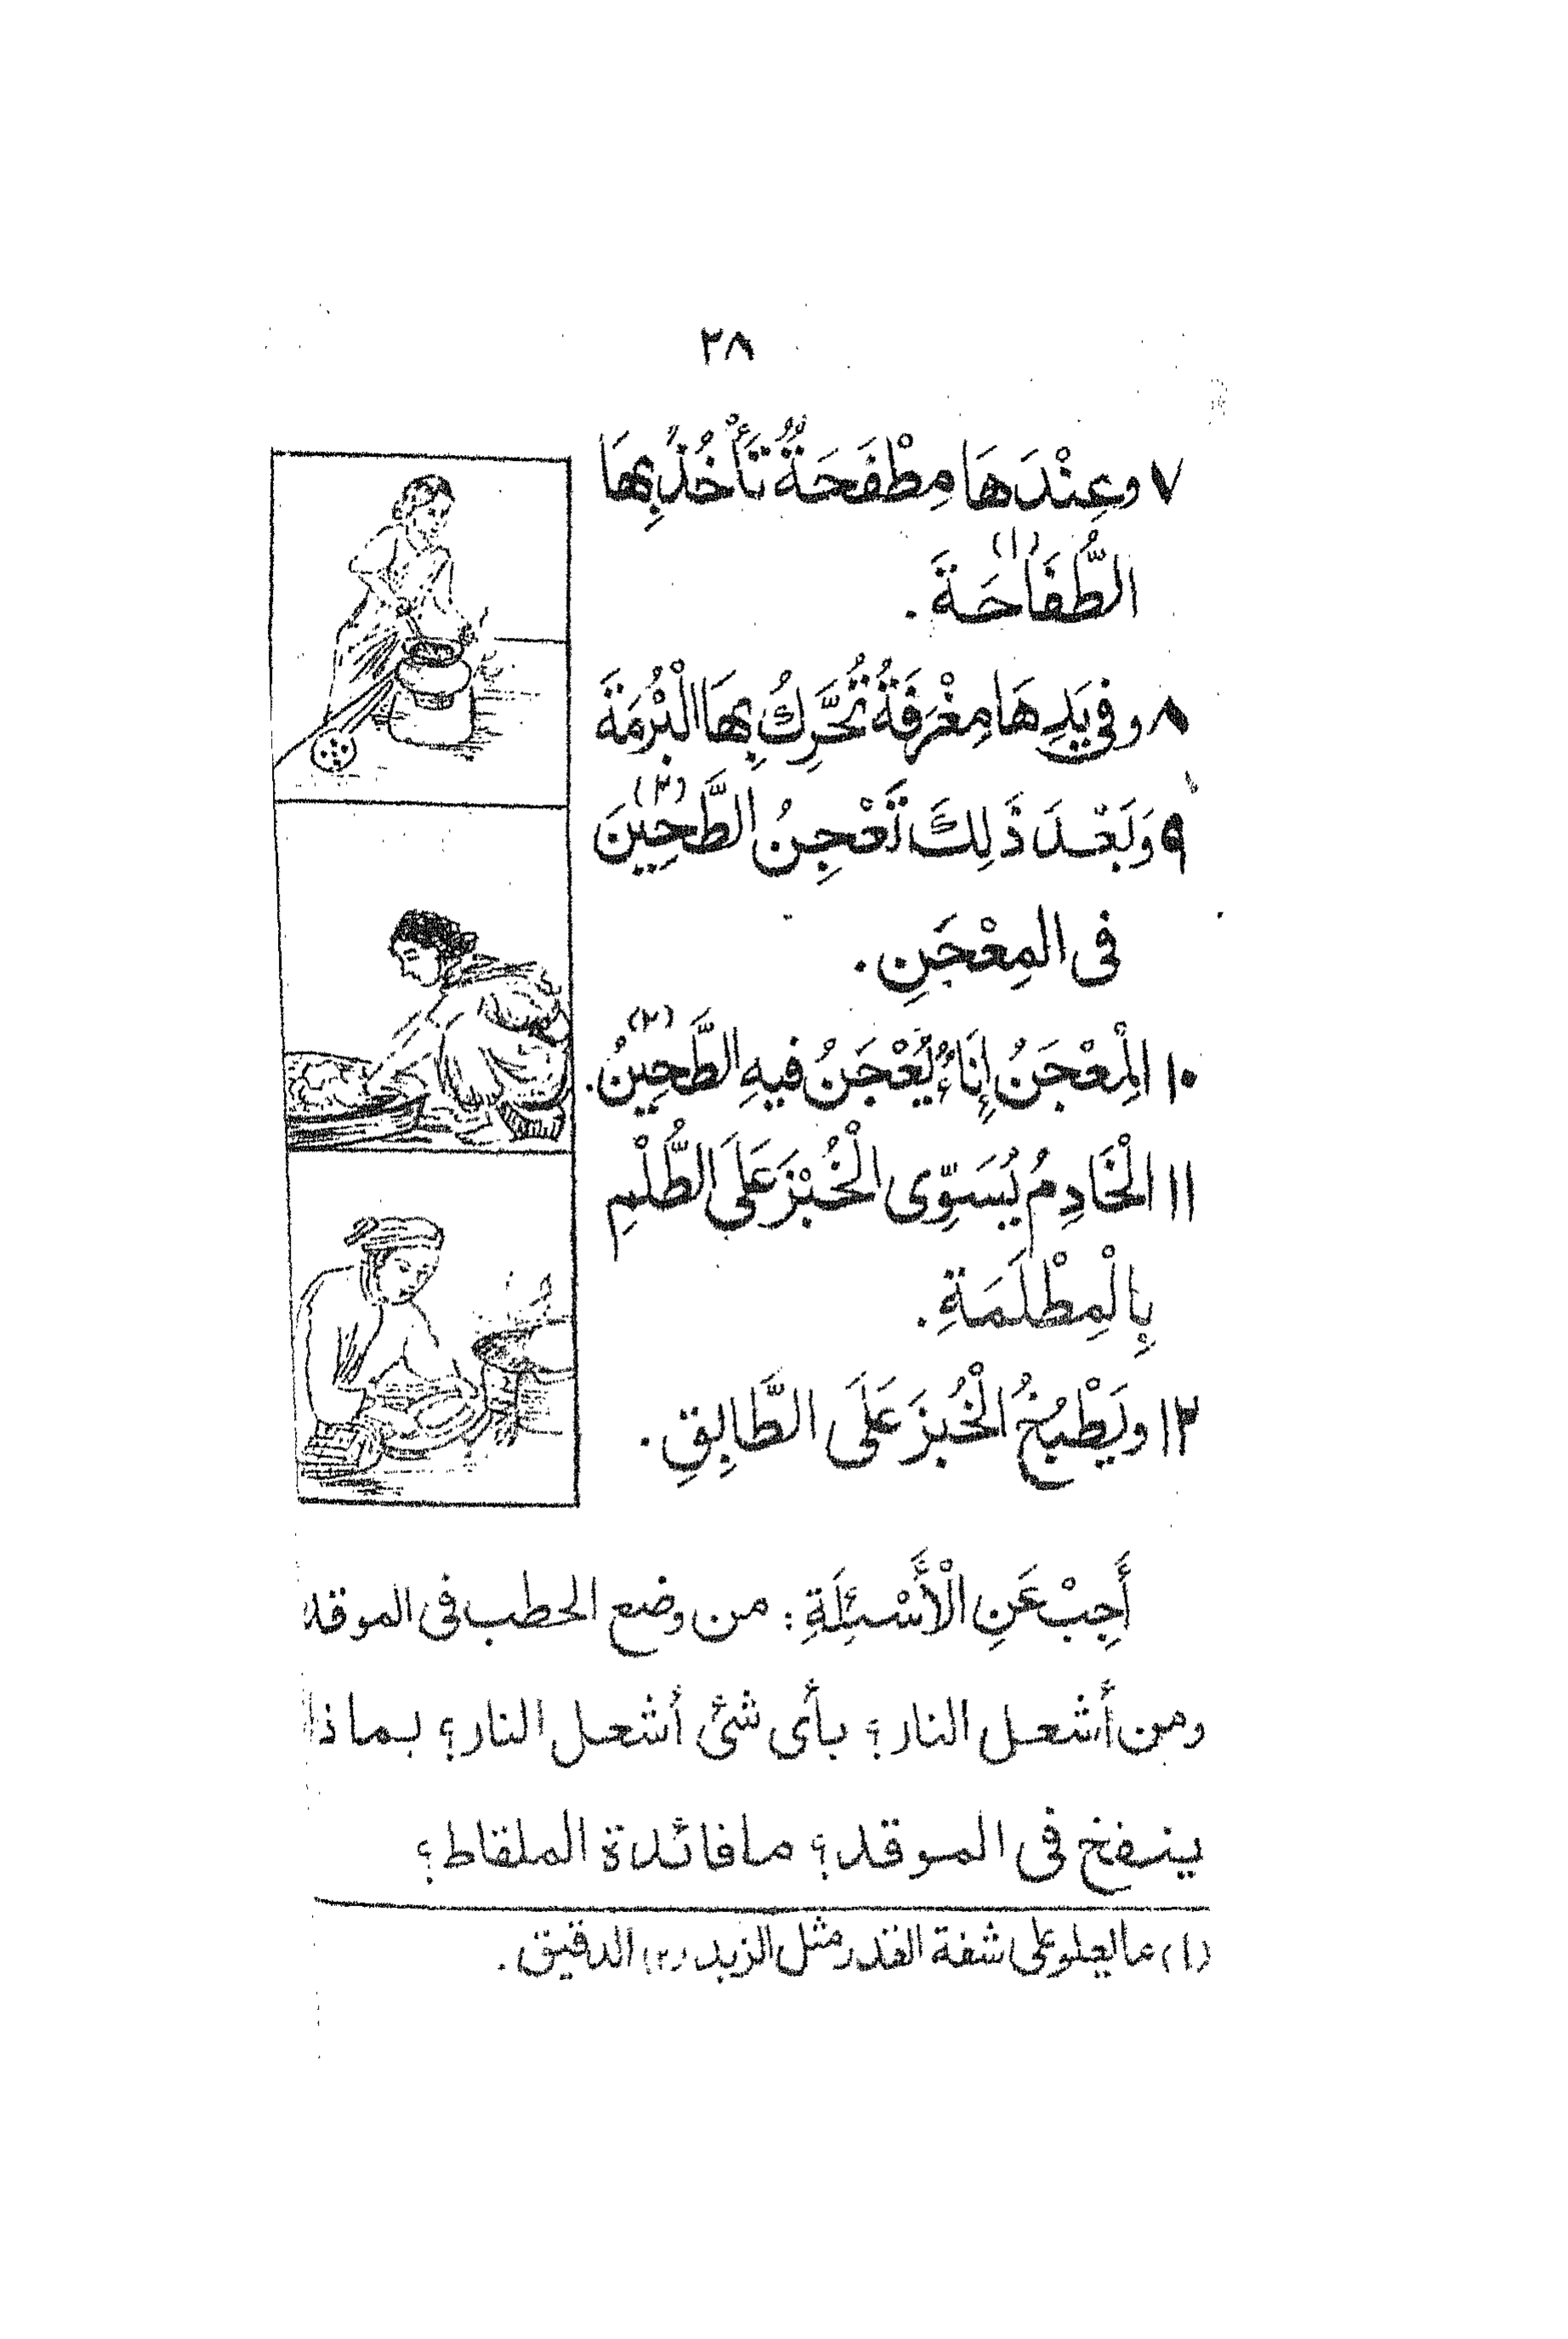 ٢٨
٧ وعِنْدَهَا مِطْفَحَةٌ تَأْخُذُ بِهَا
الطُّفَاحَةَ(١).
٨ وفي يَدِهَا مِغْرَفَةٌ تُحَرِّكُ بِهَا الْبُرْمَةَ
٩ وَبَعْدَ ذَلِكَ تَعْجِنُ الطَّحِيْنَ(٢)
فى المِعْجَنِ.
١٠ الْمِعْجَنُ إِنَاءٌ يُعْجَنُ فيهِ الطَّحِيْنُ(٢).
١١ الْخَادِمُ يُسَوِّى الْخُبْزَ عَلَى الطُّلْمِ
بِالْمِطْلَمَةِ.
١٢ ويَطْبُخُ الْخُبزَ عَلَى الطَّابِقِ.
أَجِبْ عَنِ الْأَسْئِلَةِ: من وضع الحطب فى الموقد
ومن أشعل النار؟ بأى شئ أشعل النار؟ بماذا
ينفخ فى الموقد؟ ما فائدة الملقاط؟
(١) ما يعلو على شفة القدر مثل الزبد (٢) الدقيق.